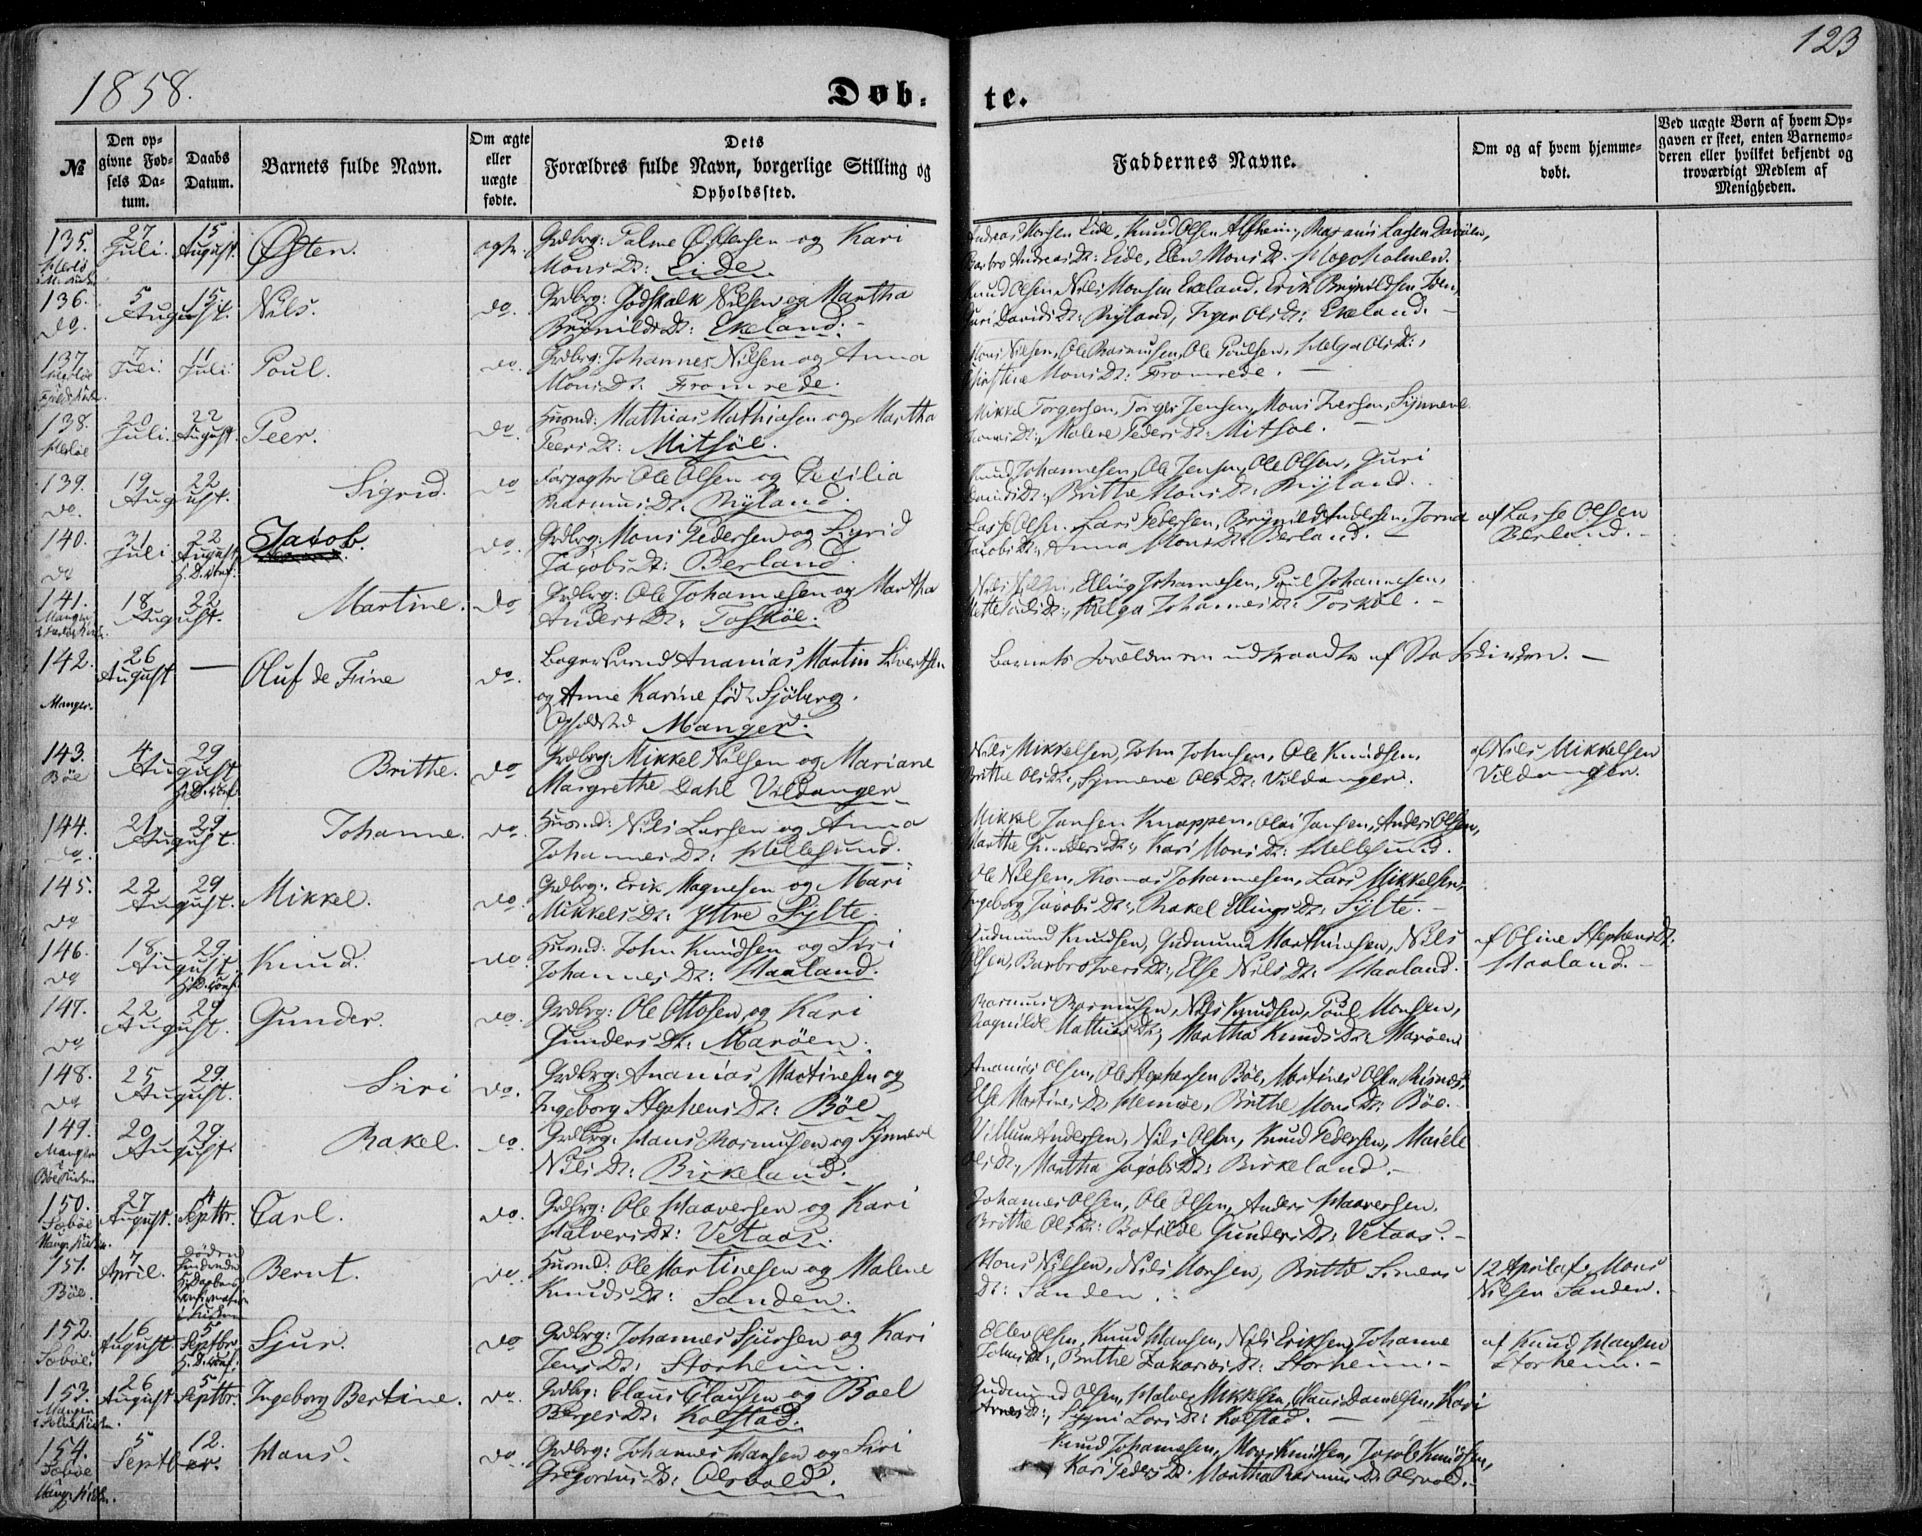 1858.
Døb-
te.
123
№
Den op-
givne Fød-
sels Da-
tum.
Daabs
Datum.
Barnets fulde Navn.
Om ægte
eller
uægte
fødte.
Dets
Forældres fulde Navn, borgerlige Stilling og
Opholdssted.
Faddernes Navne.
Om og af hvem hjemme-
døbt.
Ved uægte Børn af hvem Op-
gaven er skeet, enten Barnemo-
deren eller hvilket bekjendt og
troværdigt Medlem af
Menigheden.
135. 27 Juli. 15 August. Østen. ægte. Grdbrg: Salme Østensen og Kari
Mons Dt: Eide.
Barbro Andreas Dt: Eide, Elen Mons Dt:
136. 5 August. 15 Nils. do. Grdbrg: Godskalk Nilsen og Martha
Brynilds Dt: Ekeland.
Knud Olsen, Nils Monsen Ekeland, Erik Brynildsen
Guri Davids Dt: Ryland, Inger Ols Dt: Ekeland.
137. 7 Juli. 11 Juli. Poul. do. Grdbrg: Johannes Nilsen og Anna
Mons Dt: Fromrede.
Mons Nilsen, Ole Rasmusen, Ole Poulsen, Helga Ols Dt:,
Kirstine Mons Dt: Fromrede.
138. 20 Juli. 22 August. Peer. do. Huusmd: Mathias Mathiasen og Martha
Peers Dt: Mitsøe.
Mikkel Torgersen, Torger Jensen, Mons Iversen, Synneve
Malene Peders Dt: Mitsøe.
139. 19 August. 22 Sigrid. do Forpagter Ole Olsen og Cecilia
Rasmus Dt. Ryland.
Knud Johannesen, Ole Jensen, Ole Olsen, Guri
Davids Dt:, Brithe Mons Dt: Ryland.
140. 31 Juli 22 August Jacob. do. Grdbrg: Mons Pedersen og Sigrid
Jacobs Dt: Berland.
Lasse Olsen, Lars Pedersen, Brynild Andersen,
Jacobs Dt:, Anna Mons Dt: Berland.
af Lasse Olsen
Berland.
141. 18 August. 22 Martine. do Grdbrg: Ole Johannesen og Martha
Anders Dt: Toskøe.
Nils Nilsen, Elling Johannesen, Poul Johannesen,
Helga Johannes Dt: Toskøe.
142. 26 August — Oluf de Fine do. Bogersvend Ananias Martin Sivertsen
og Anne Karine født Sjøberg.
Opholdsted Manger.
Manger.
Barnets Forældre ere udtraadte af Statskirken.
143. 4 August 29 Brithe. do Grdbrg: Mikkel Nilsen og Mariane
Bøe
Margrethe Dahl Vildanger
Nils Mikkelsen, John Johnsen, Ole Knudsen,
Brithe Ols Dt:, Synneve Ols Dt: Vildanger.
af Nils Mikkelsen
Vildanger.
144. 21 August. 29 Johanne. do. Huusmd: Nils Larsen og Anna
Johannes Dt: Hellesund.
Mikkel Jansen Knappen, Olai Jansen, Anders Olsen,
Marthe Dt:, Kari Mons Dt: Hellesund.
145. 22 August. 29 Mikkel. do. Grdbrg: Erik Magnesen og Mari
Mikkels Dt: Ystre Sylte.
Ole Nilsen, Thomas Johannesen, Lars Mikkelsen,
Ingeborg Jacobs Dt:, Rakel Ellings Dt: Sylte.
146. 18 August. 29. Knud. do. Huusmd: John Knudsen og Siri
Johannes Dt: Haaland.
Gudmund Knudsen, Gudmund Marthinsen, Nils
Olsen, Barbro Ivers Dt:, Else Nils Dt: Haaland.
af Oline Stephens Dt:
Haaland.
147. 22 August. 29 Gunder. do. Grdbrg: Ole Ottosen og Kari
Gunders Dt: Marøen.
Rasmus Rasmusen, Nils Knudsen, Poul Monsen,
Ragnilde Mathias Dt:, Martha Knuds Dt: Marøen
148. 25 August. 29. Siri do. Grdbrg: Ananias Martinesen og
Ingeborg Stephens Dt: Bøe
Ananias Olsen, Ole Stephensen Bøe, Martines Olsen Risnæs,
Else Martines Dt Brithe Mons Dt: Bøe.
149. 20 August. 29. Rakel. do. Grdbrg: Hans Rasmusen og Synneve
Nils Dt: Birkeland.
Villum Andersen, Nils Olsen, Knud Pedersen,
Ols Dt:, Martha Jacobs Dt: Birkeland.
150. 27 August. 4 Septbr. Carl. do. Grdbrg: Ole Haaversen og Kari
Halvers Dt: Vetaas.
Johannes Olsen, Ole Olsen, Anders Haaversen,
Brithe Ols Dt: Botilde Gunders Dt: Vetaas.
151. 7 April. Bernt. do Huusmd: Ole Martinesen og Malene
Bøe.
Knuds Dt: Sanden.
Mons Nilsen, Nils Monsen, Brithe
Dt: Sanden.
12 April af Mons
Nilsen Sanden.
152. 16 August. 5 Septbr. Sjur. do Grdbrg: Johannes Sjursen og Kari
Jens Dt: Storheim
Eller Olsen, Knud Hansen, Nils Eriksen, Johanne
Johns Dt:, Brithe Zakarias Dt: Storheim.
af Knud Hansen
Storheim.
153. 26 August 5 Septbr. Ingeborg Bertine. do. Grdbrg: Claus Clausen og Boel
Børges Dt: Kolstad.
Gudmund Olsen, Halver Mikkelsen, Claus Danielsen, Kari
Arnes Dt:, Sygni Lars Dt: Kolstad.
154. 5 Septber. 12. Hans. do. Grdbrg: Johannes Hansen og Siri
Gregorius Dt: Olsvold.
Knud Johannesen, Mons Knudsen, Jacob Knudsen,
Kari Peders Dt. Martha Rasmus Dt. Olsvold.